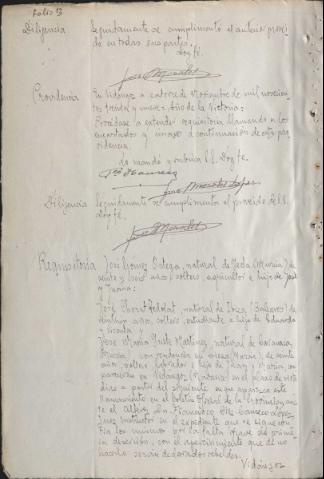 Folio 3
Diligencia Seguidamente se cumplimentó el anterior proveí
do en todas sus partes.
Doy fé.
José Morales
Providencia En Vidángoz a catorce de Noviembre de mil novecien
tos treinta y nueve. Año de la Victoria:
Procédase a extender requisitoria llamando a los
encartados y únase a continuación de esta pro
videncia.
Lo mandó y rubrica S.S. Doy fe.
Diligencia Seguidamente se cumplimentó el proveido de S.S.
Doy fé.
José Morales
Requisitoria José Gomez Ortega, natural de Yecla (Murcia), de
veinte y años, soltero, agricultor e hijo de José
y Juana;
José natural de Ibiza (Baleares) de
años, soltero, estudiante e hijo de Eduardo
y Vicenta y
José María Martinez, natural de Caravaca,
Murcia, con residencia en (Murcia), de veinte
años, soltero, labrador e hijo de Juan y María, com
parecerán en Vidángoz (Navarra) en el plazo de siete
días a partir del siguiente en que aparezca este
llamamiento en el Boletín Oficial de la Provincia, an
te el Alférez Dn. Francisco López,
Juez Instructor en el expediente que se sigue con
tra los mismos por la falta grave de prime
ra deserción, con el apercibimiento que de no
hacerlo serán declarados rebeldes.
Vidángoz